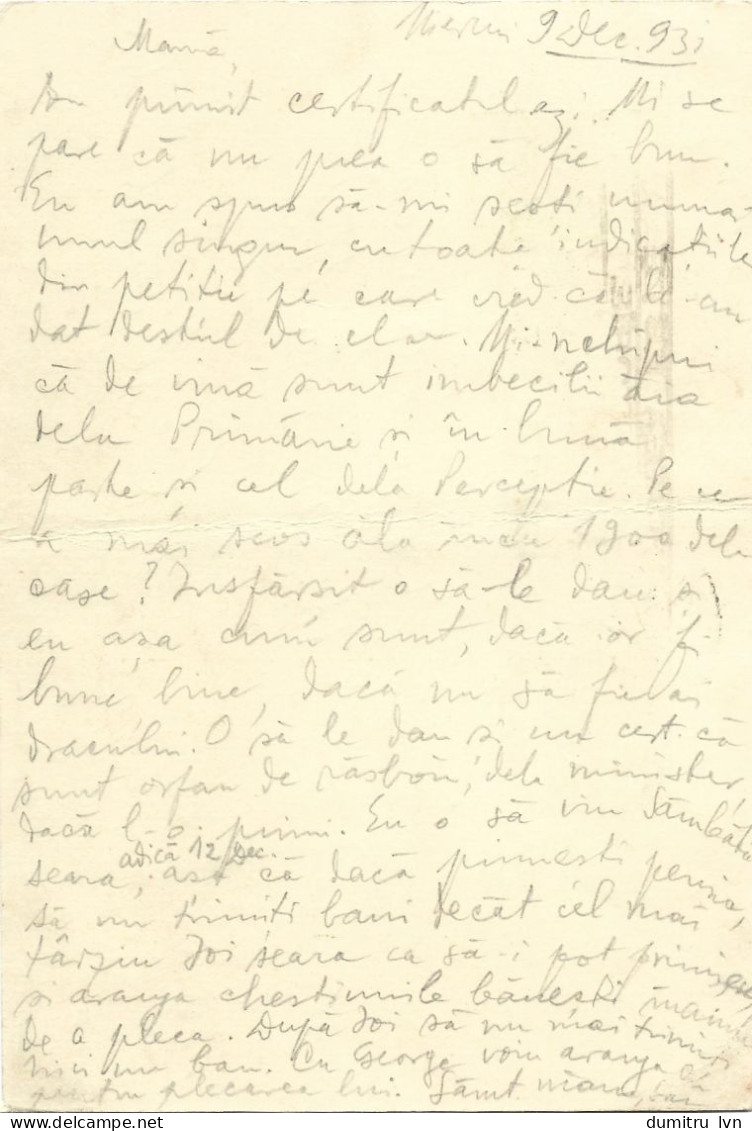 Miercuri 9 Dec. 931
Mamă,
Am primit certificatul azi. Mi se
pare că nu prea o să fie bun.
Eu am spus să-mi scoti numai
unul singur, cu toate indicatiile
din petitie pe care văd că li-am
dat destul de clar. Mi-nchipui
că de vină sunt imbecilii ăia
dela Primărie si în bună
parte si cel dela Perceptie. Pe ce
a mai scos ăla încă 1900 dela
case? Însfârsit o să-le dau si
eu asa cum sunt, dacă or fi
bune bine, dacă nu să fie ai
dracului. O să le dau si un cert. că
sunt orfan de răsboiu, dela minister,
dacă l-o primi. Eu o să vin Sâmbătă
seara, adică 12 Dec.
ast că dacă primesti pensia,
să nu trimiti bani decât cel mai
târziu Joi seara ca să-i pot primi
si aranja chestiunile bănesti înainte
de a pleca. După Joi să nu mai trimiti
nici un ban. Cu George voiu aranja
pentru plecarea lui. Sărut mâna,
dumitru lvn